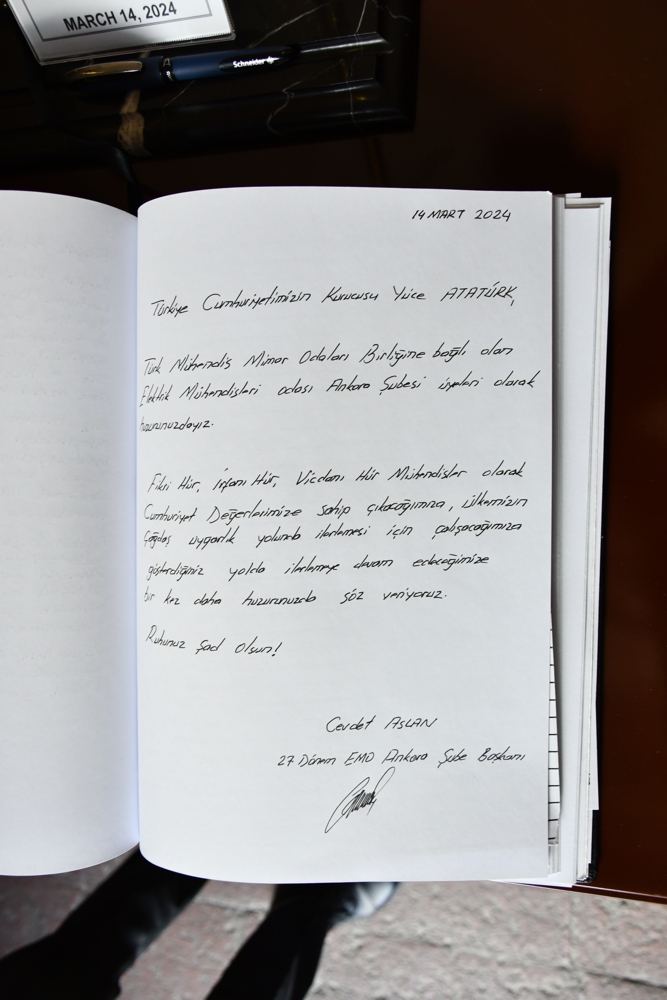 MARCH 14, 2024
Schneider
14 MART 2024
Türkiye Cumhuriyetimizin Kurucusu Yüce ATATÜRK,
Türk Mühendis Mimar Odaları Birliğine bağlı olan
Elektrik Mühendisleri odası Ankara Şubesi üyeleri olarak
huzurunuzdayız.
Fikri Hür, İrfanı Hür, Vicdanı Hür Mühendisler olarak
Cumhuriyet Değerlerimize sahip çıkacağımıza, ülkemizin
Çağdaş uygarlık yolunda ilerlemesi için çalışacağımıza
gösterdiğiniz yolda ilerlemeye devam edeceğimize
bir kez daha huzurunuzda söz veriyoruz.
Ruhunuz şad olsun!
Cevdet ASLAN
27 Dönem EMO Ankara Şube Başkanı